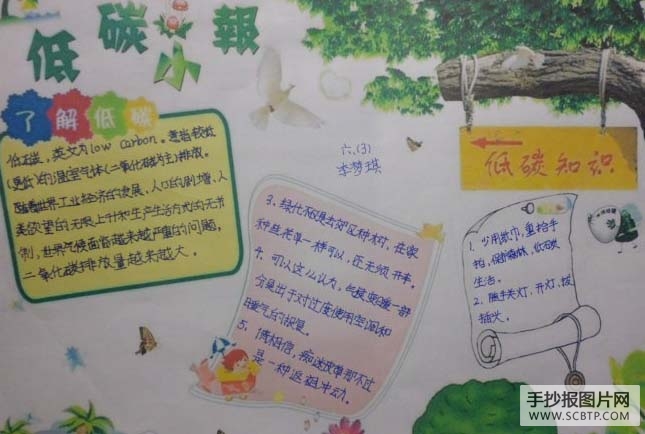 低碳小報
了解低碳
低碳,英文为low carbon。意指较低
(更低)的温室气体(二氧化碳为主)排放。
随着世界工业经济的发展、人口的剧增、人
类欲望的无限上升和生产生活方式的无节
制,世界气候面临越来越严重的问题,
二氧化碳排放量越来越大。
六.(3)
李梦琪
3、绿化不仅去郊区种树,在家
种些花草一样可以,还无须开车。
4、可以这么认为,气候变暖一部
分是出于对过度使用空调和
暖气的报复。
5、请相信,痴迷皮草那不过
是一种返祖冲动。
低碳知识
1、少用纸巾,重拾手
帕,保护森林,低碳
生活。
2、随手关灯、开灯、拔
插头。
手抄报图片网
WWW.SCBTP.COM